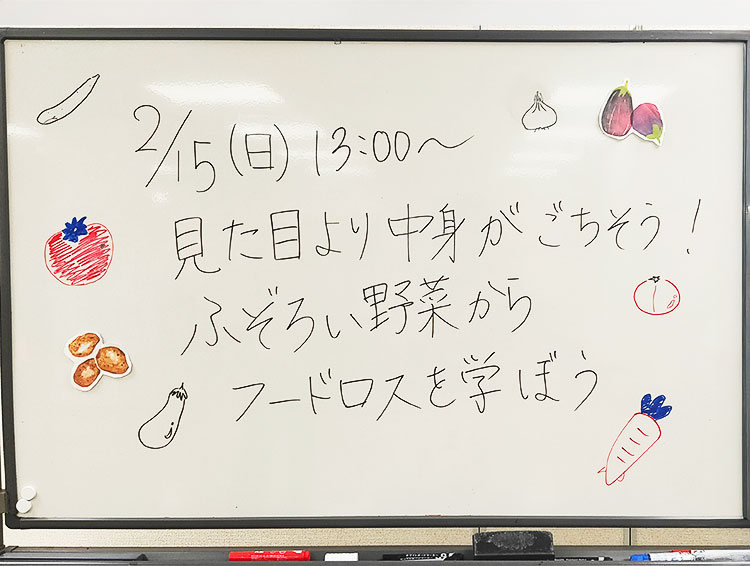 2/15(日) 13:00〜
見た目より中身がごちそう!
ふぞろい野菜から
フードロスを学ぼう